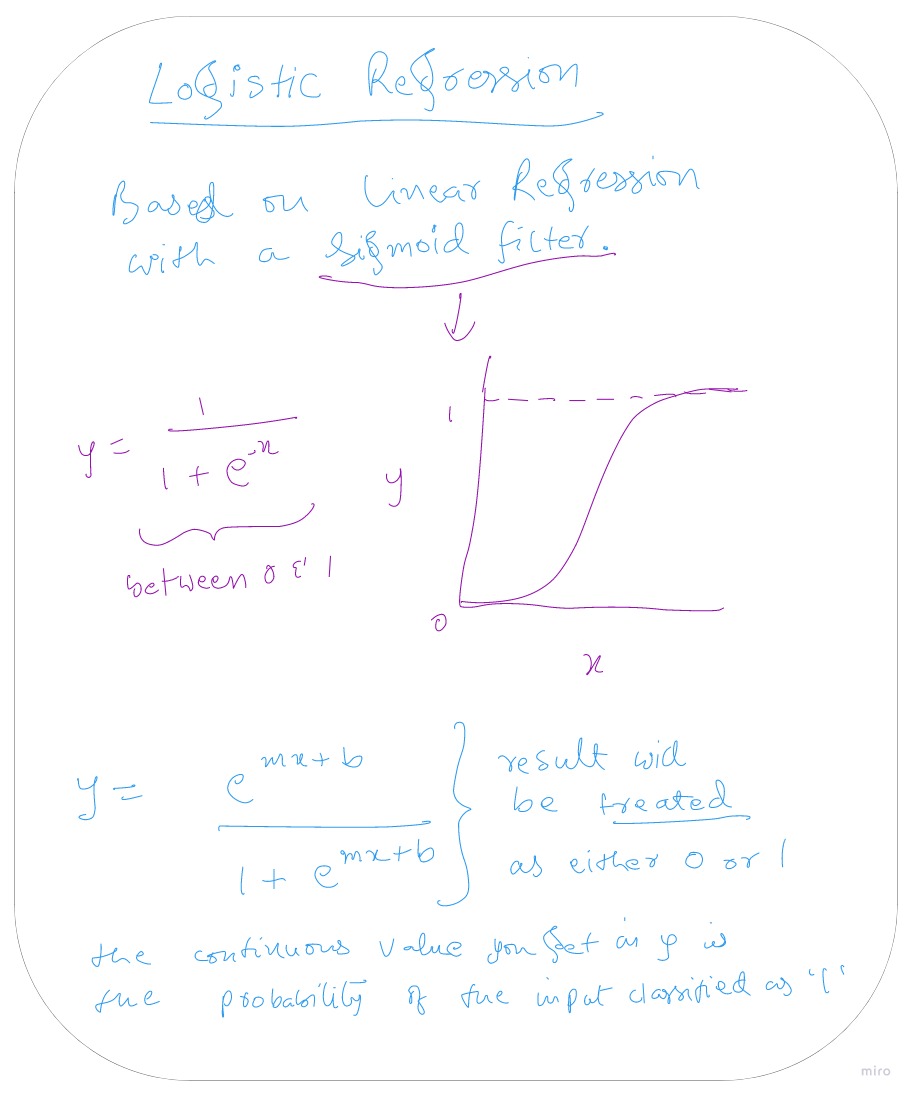 Logistic Regression
Based on Linear Regression
with a sigmoid filter.
y = 1 / (1 + e^-x)
between 0 & 1
1
y
0
x
y = e^(mx+b) / (1 + e^(mx+b))
result will
be treated
as either 0 or 1
the continuous value you get in y is
the probability of the input classified as '1'
miro